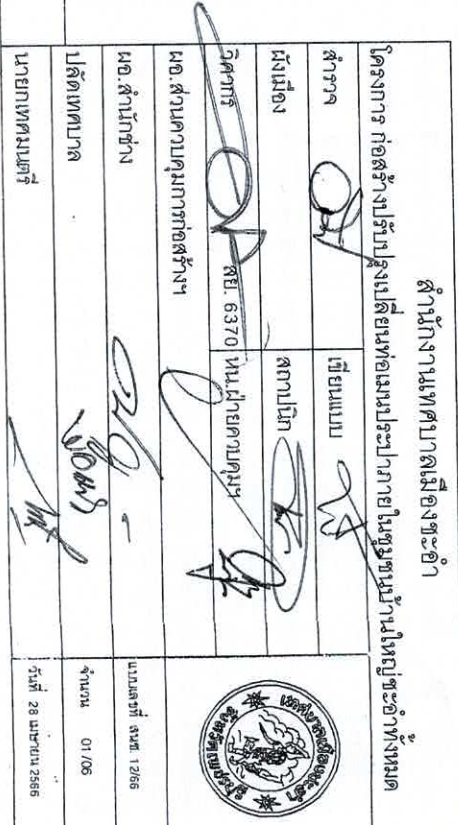 สำนักงานเทศบาลเมืองชะอำ
โครงการ ก่อสร้างปรับปรุงเปลี่ยนท่อเมนประปาภายในชุมชนบ้านใหญ่ชะอำทั้งหมด
สำรวจ เขียนแบบ
ผังเมือง สถาปนิก
วิศวกร สย. 6370 หน.ฝ่ายควบคุมฯ
ผอ.ส่วนควบคุมการก่อสร้างฯ
ผอ.สำนักช่าง
ปลัดเทศบาล
นายกเทศมนตรี
แบบเลขที่ สนช. 12/66
จำนวน 01/06
วันที่ 28 เมษายน 2566